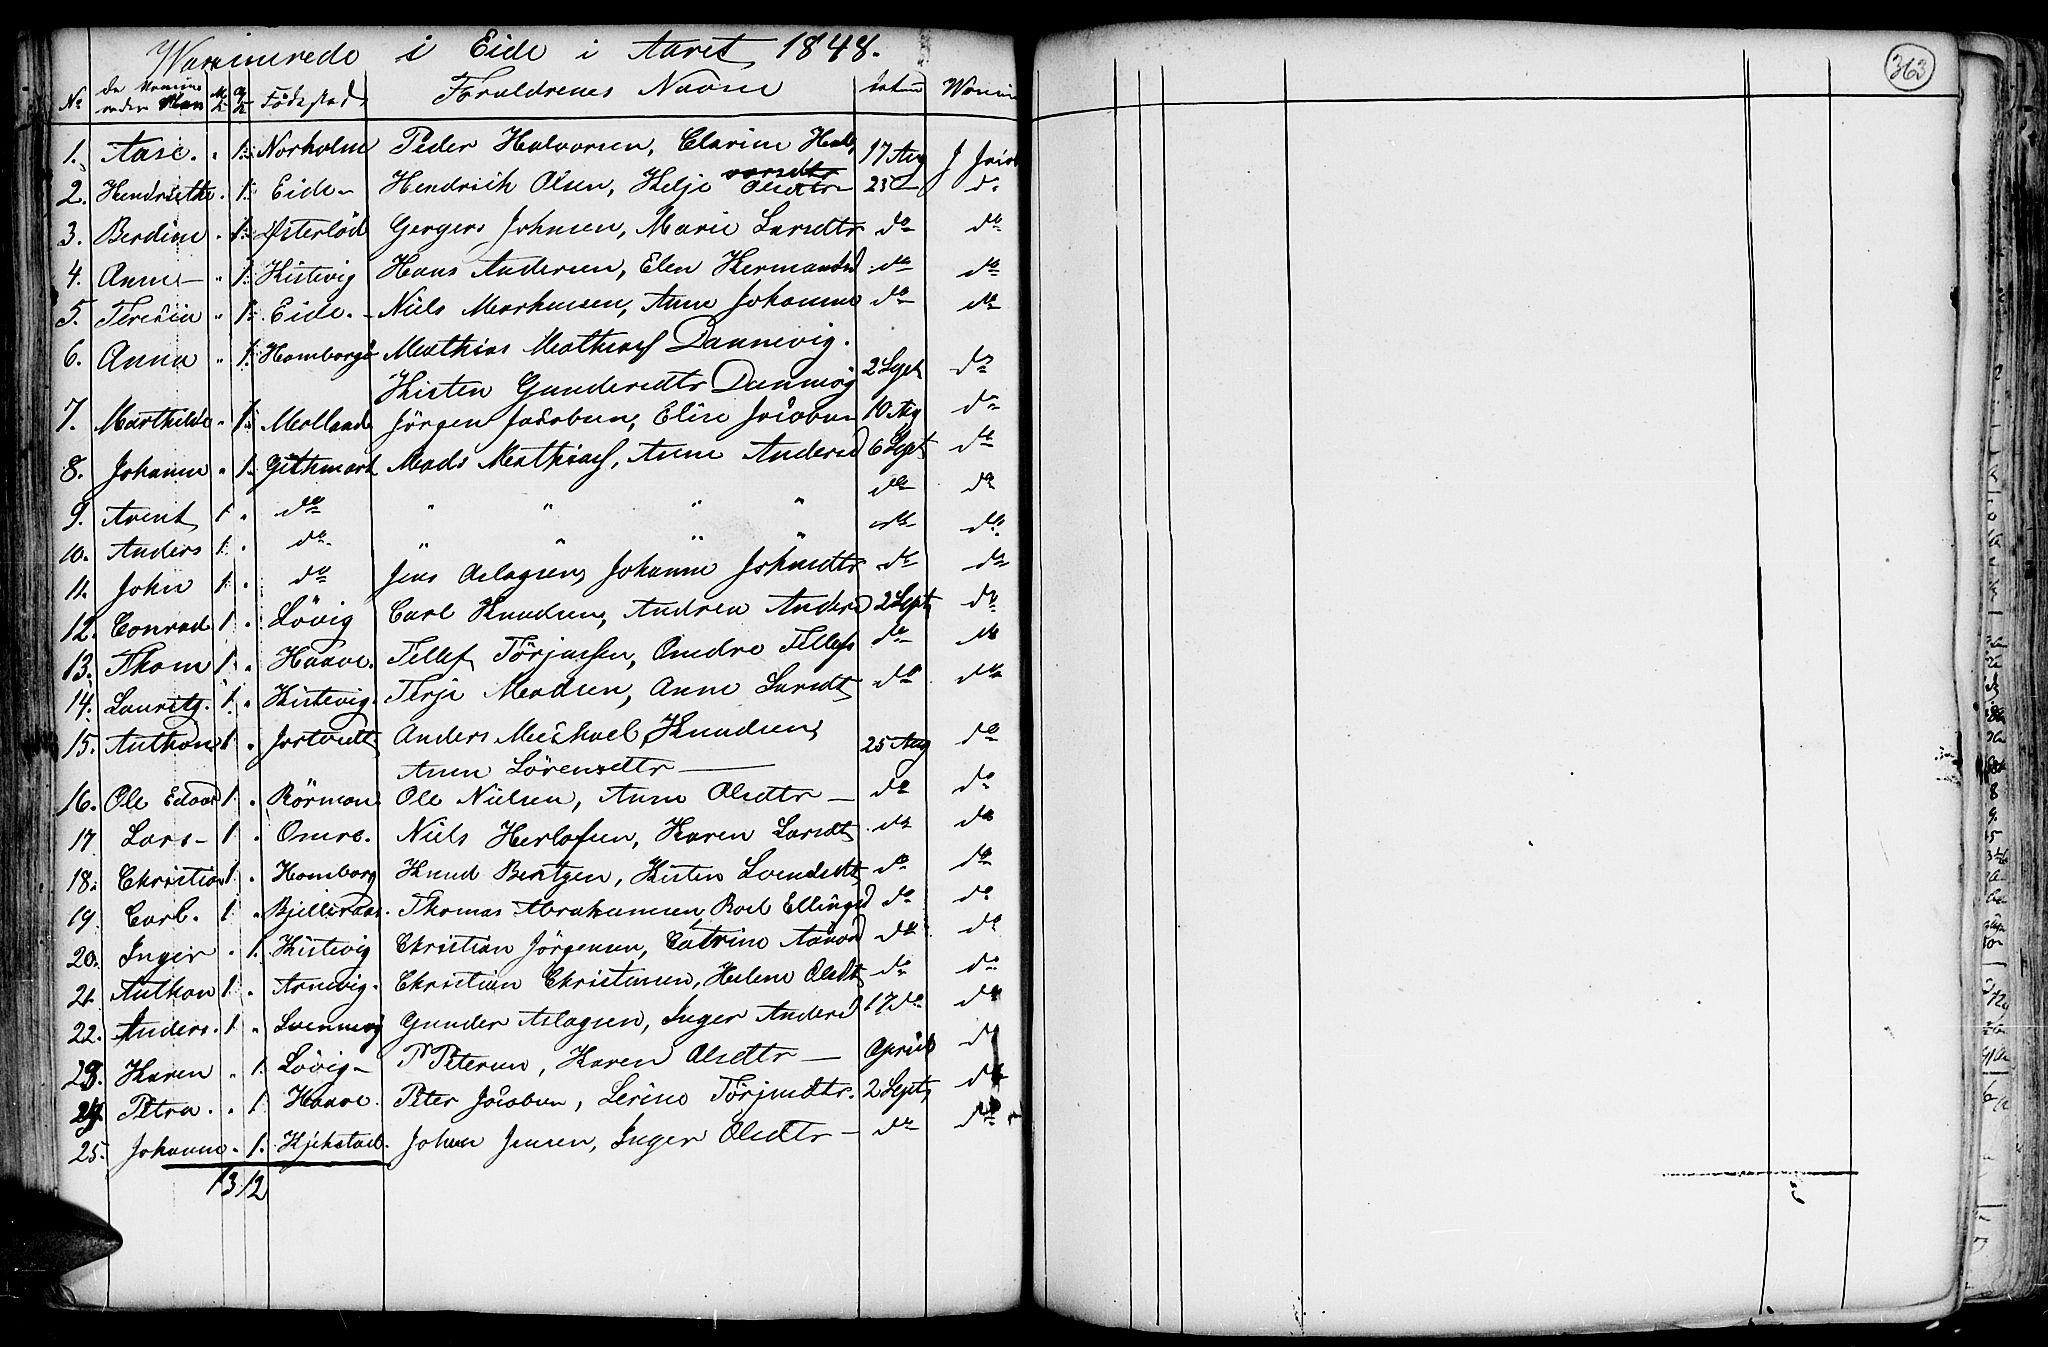 Waxinerede i Eide i Aaret 1848.
363
No de Vaxine redes Navn M.k. Q.k. Fødested Foraldrenes Navne datum Waxin
1. Aase. " 1. Norholm Peder Halvorsen, Clarine Hal 17 Aug J
vorsdtr
2. Hendrikthe " 1. Eide - Hendrich Olsen, Helje Olsdtr 23 - do
3. Berdine " 1. Østerlød Gergers Johnsen, Marie Larsdtr do do
4. Anne - " 1. Kistevig Hans Andersen, Elen Hermansd do do
5. Teresia " 1. Eide. - Niels Markusen, Anne Johanne do do
6. Anna " 1. Homborgs Mathias Mathias Dannevig.
Kisten Gundersdtr Dannevig 2 Sept do
7. Marthilde " 1. Molland Jörgen Jacobsen, Elise Jacobsen 10 Aug do
8. Johanne " 1. Githmark Mads Mathias, Anne Andersd 6 Sept do
9. Arent 1 " do " " " " do do
10. Anders 1 " do. " " " " do do
11. John 1. " do Jens Aslagsen, Johanne Johnsdtr do do
12. Conrad 1 " Lövig Carl Knudsen, Andrea Anders 2 Sept do
13. Thom 1. " Haave. Tellef Törjussen, Andre Tellefs do do
14. Lauritz. 1. " Kistevig. Terje Madsen, Anne Larsdt do do
15. Anthon 1 " Jortvedt Anders Michael Knudsen,
Anen Lörensdtr — 25 Aug do
16. Ole Edvar 1. " Rörmon Ole Nielsen, Anne Olsdtr — do do
17 Lars - 1 " Omre. Niels Herlofsen, Karen Larsdt do do
18. Christian 1. " Homborg Knud Bentzen, Kisten Svendsdt do do
19 Carl. 1 " Thomas Abrahamsen, Roel Ellingsd do do
20. Inger " 1. Kistevig Christian Jörgensen, Catrine do do
21 Anthon 1 " Arnevig. Christian Christensen, Helene Olsdt do do
22. Anders. 1. " Svennevig Gunder Aslagsen, Inger Andersd 17 do do
23. Karen " 1. Lövig - P Petersen, Karen Olsdtr — April do
24. Petra. " 1. Haave. Peter Jacobsen, Serine Törjusdtr. 2 Sept do
25. Johanne " 1. Hjekstad. Johan Jensen, Inger Olsdtr - do do
13 12